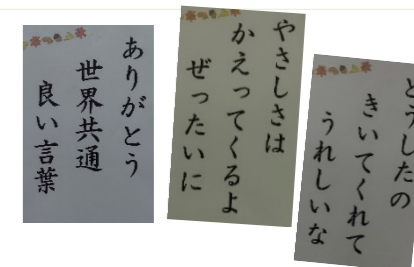 ありがとう
世界共通
良い言葉
やさしさは
かえってくるよ
ぜったいに
どうしたの
きいてくれて
うれしいな